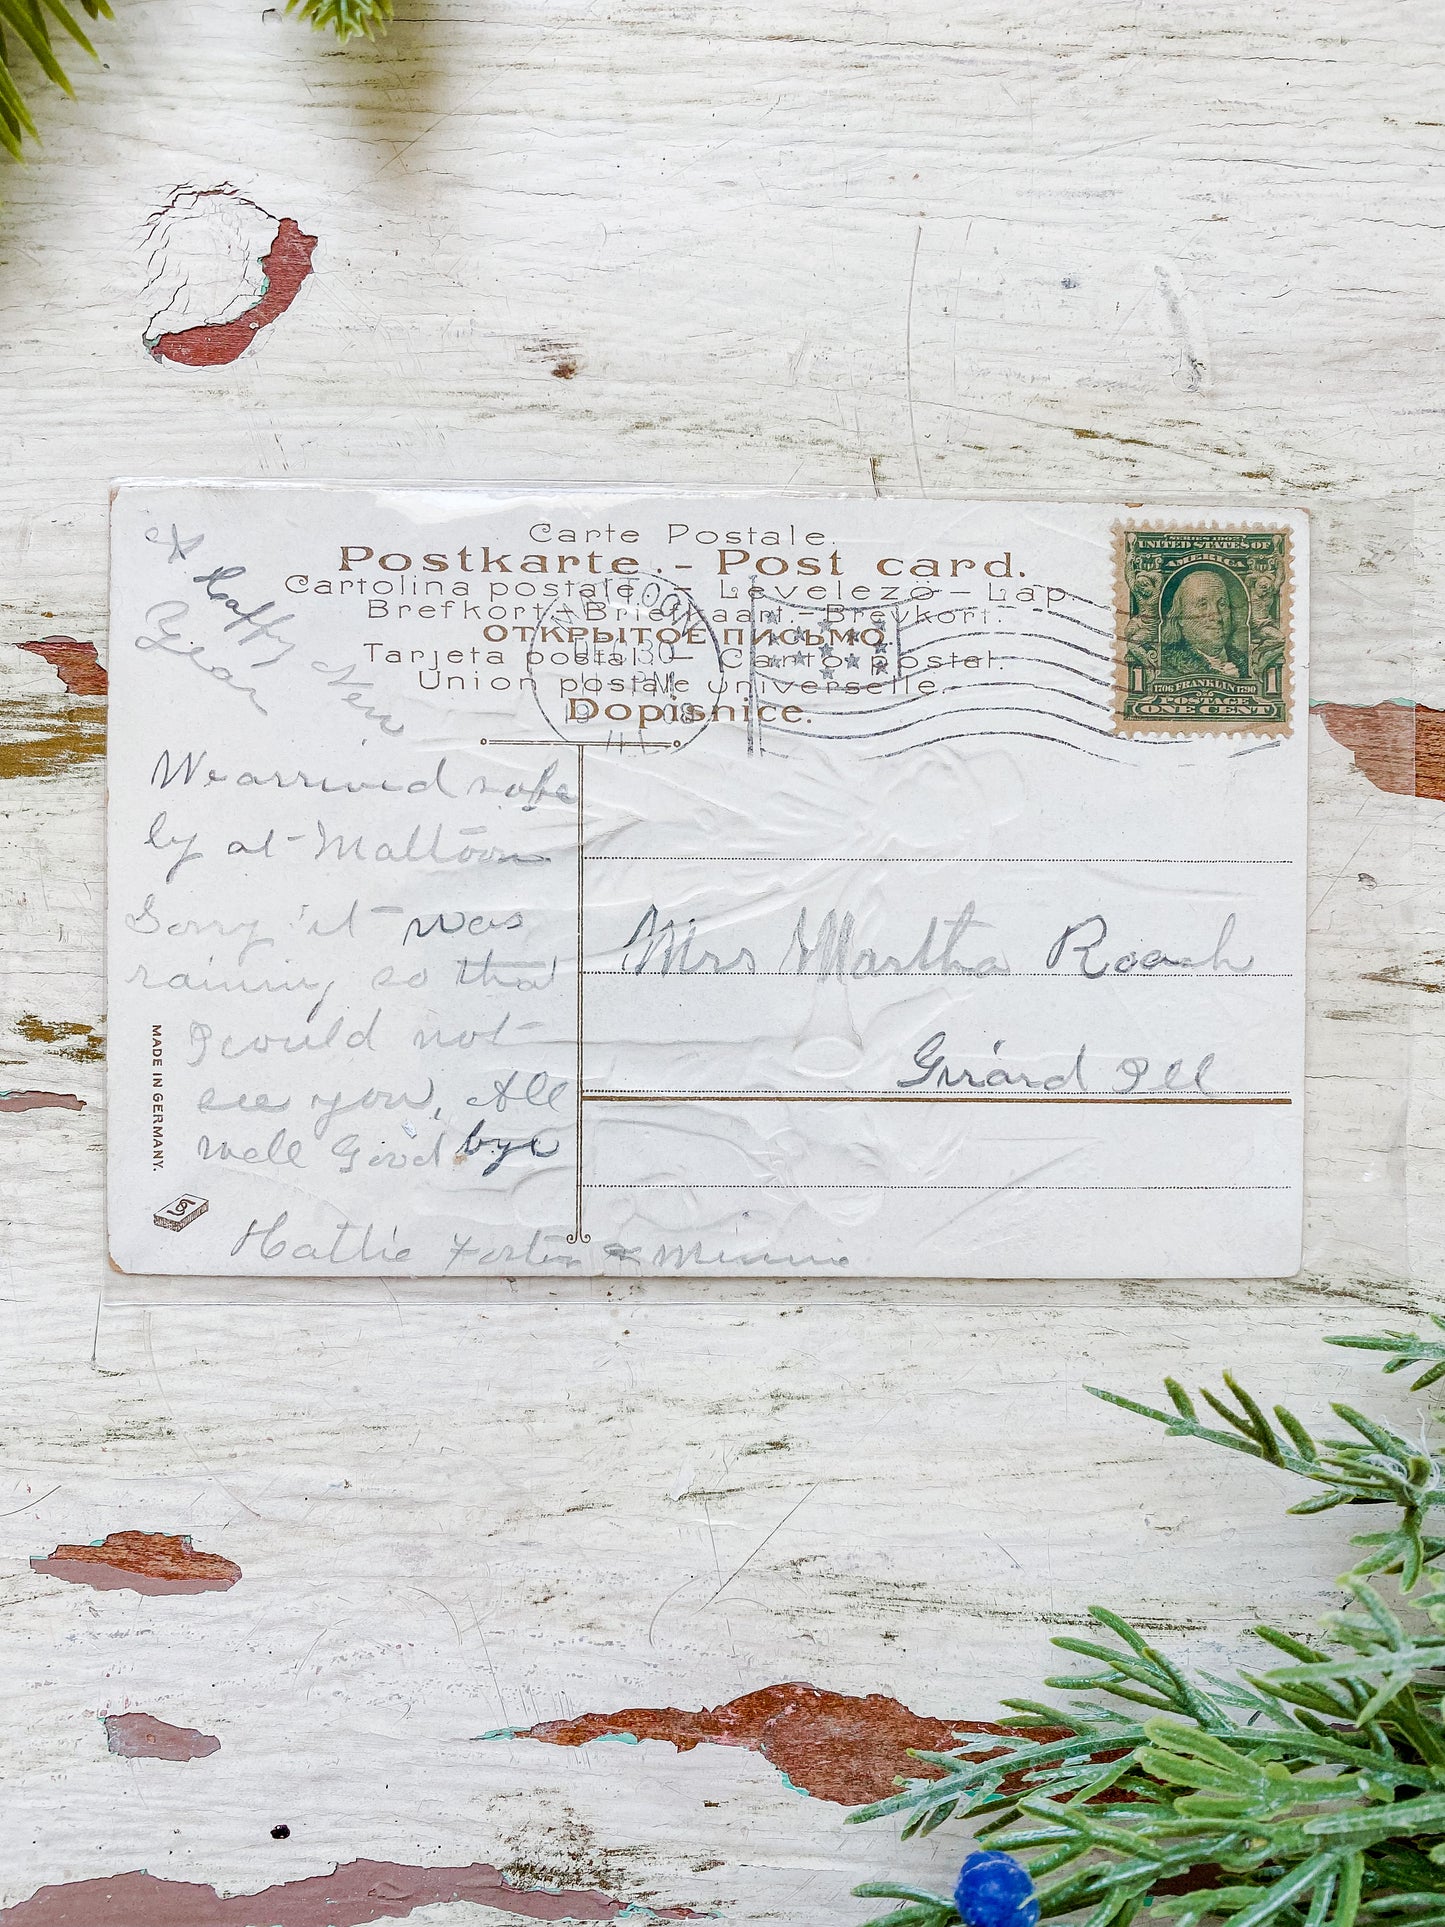 Carte Postale.
Postkarte. - Post card.
Cartolina postale. – Levelezö – Lap
Brefkort – Briefkaart. – Brevkort.
ОТКРЫТОЕ ПИСЬМО.
Tarjeta postal. – Carta postal.
Union postale universelle.
Dopisnice.
MATTOON
DEC 30
08
ILL.
SERIES 1902
UNITED STATES OF
AMERICA
1 1706 FRANKLIN 1790 1
POSTAGE
ONE CENT
A Happy New
Year
We arrived safe
ly at Mattoon
Sorry it was
raining so that
I could not
see you, All
well Good bye
Hattie & Minnie
Mrs Martha Roach
Girard Ill
MADE IN GERMANY.
SB